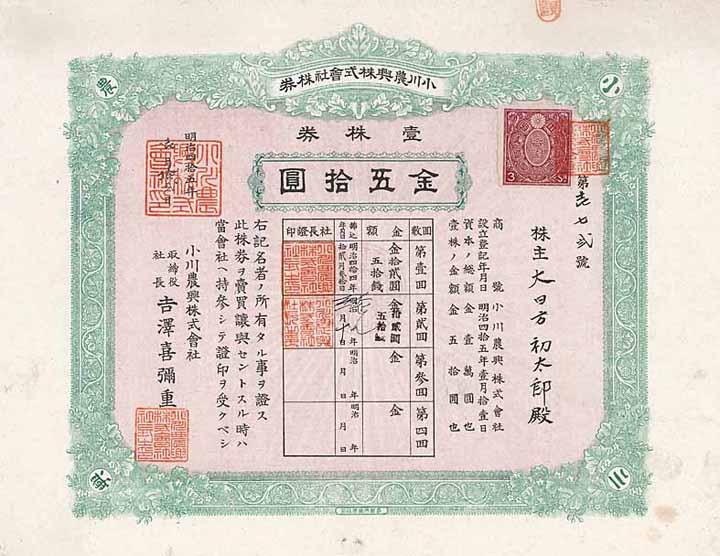 小川農興株式會社株券
小
農
川
壹株券
金五拾圓
3 Sn.
第壱七弐號
株主 大日方 初太郎殿
商號 小川農興株式會社
設立登記年月日 明治四拾五年壹月拾壹日
資本ノ總額 金壹萬圓也
壹株ノ金額 金五拾圓也
回數 金額 拂込年月日 社長證印
第壹回 金拾貳圓五拾錢 明治四拾四年拾貳月貳拾日
第貳回 金拾貳圓五拾錢 明治 年 月 日
第參回 金 明治 年 月 日
第四回 金 明治 年 月 日
右記名者ノ所有タル事ヲ證ス
此株券ヲ賣買讓與セントスル時ハ
當會社ヘ持參シテ證印ヲ受クベシ
小川農興株式會社
取締役社長 吉澤喜彌重
明治四拾五年